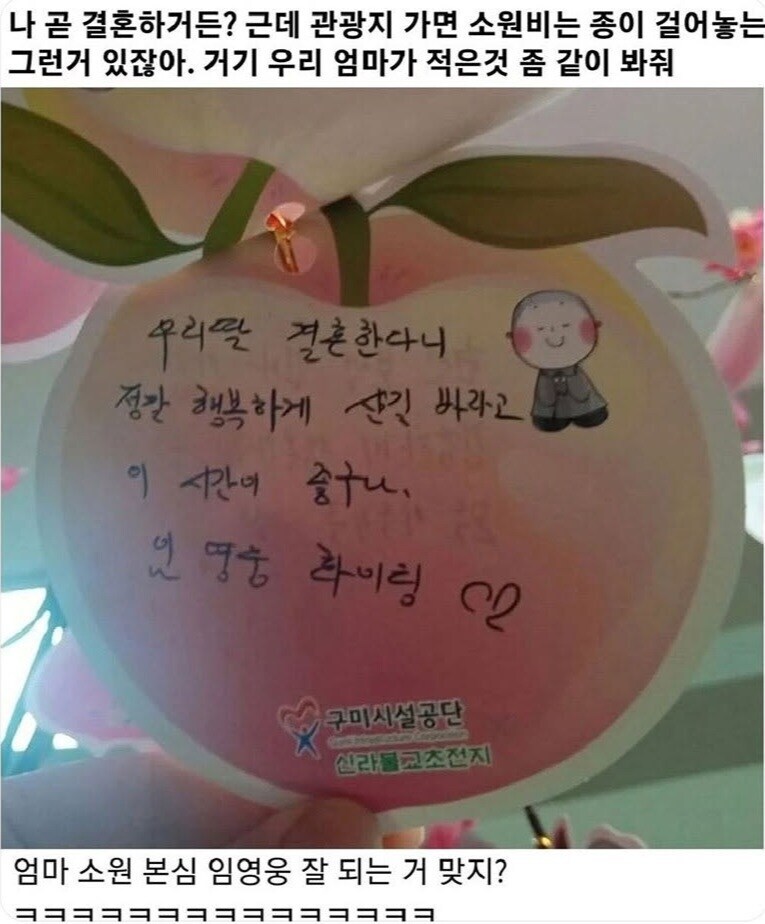 나 곧 결혼하거든? 근데 관광지 가면 소원비는 종이 걸어놓는
그런거 있잖아. 거기 우리 엄마가 적은것 좀 같이 봐줘
우리딸 결혼한다니
정말 행복하게 산길 바라고
이 시간이 좋구나.
임영웅 화이팅
구미시설공단
신라불교초전지
엄마 소원 본심 임영웅 잘 되는 거 맞지?
ㅋㅋㅋㅋㅋㅋㅋㅋㅋㅋㅋㅋㅋㅋㅋ